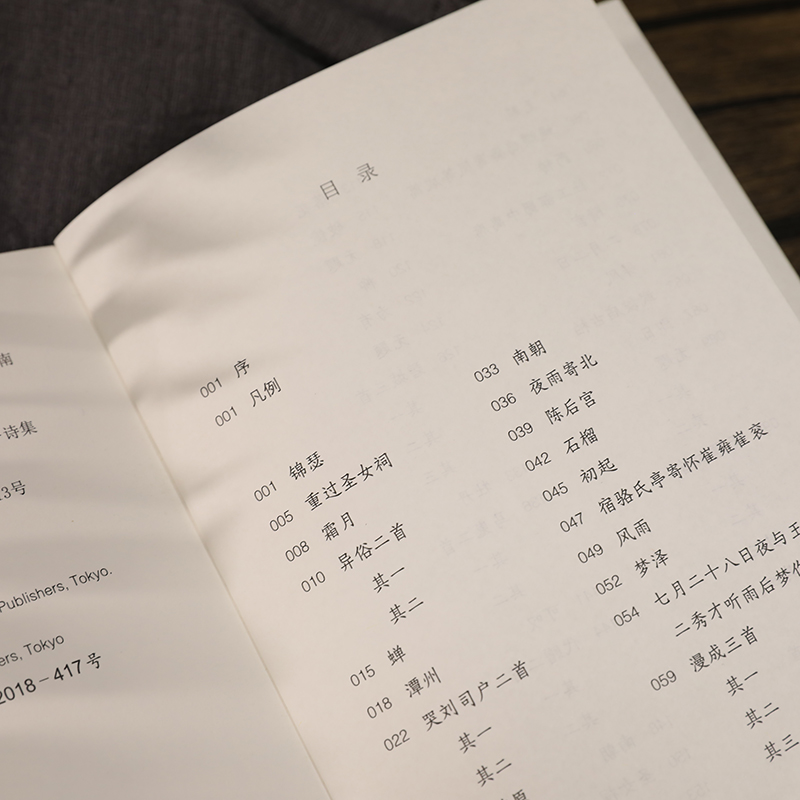 南
诗集
13号
Publishers, Tokyo.
ers, Tokyo
2018-417号
目录
001 序
001 凡例
001 锦瑟
005 重过圣女祠
008 霜月
010 异俗二首
其一
其二
015 蝉
018 潭州
022 哭刘司户二首
其一
其二
033 南朝
036 夜雨寄北
039 陈后宫
042 石榴
045 初起
047 宿骆氏亭寄怀崔雍崔衮
049 风雨
052 梦泽
054 七月二十八日夜与王
二秀才听雨后梦作
059 漫成三首
其一
其二
其三